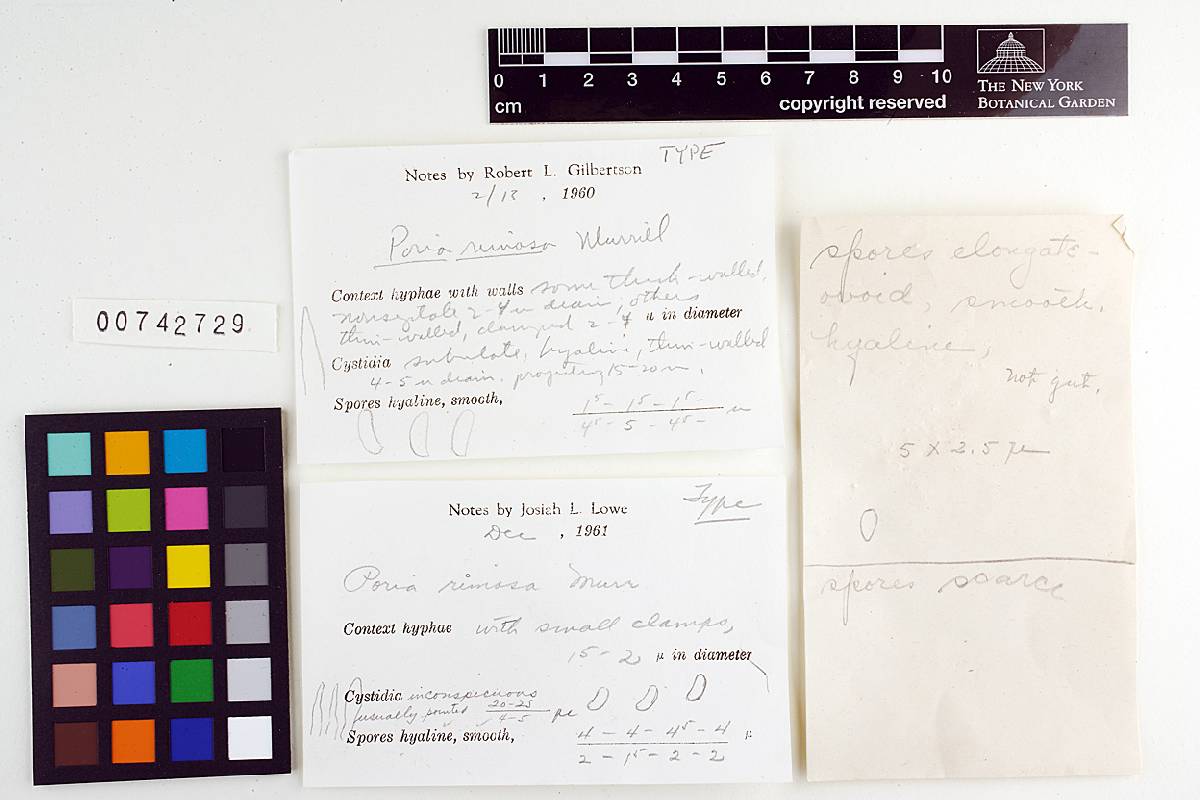 0 1 2 3 4 5 6 7 8 9 10
cm
copyright reserved
THE NEW YORK
BOTANICAL GARDEN
00742729
TYPE
Notes by Robert L. Gilbertson
2/13, 1960
Poria rimosa Murrill
Context hyphae with walls some thick-walled,
nonseptate 2-4 u diam, others
thin-walled, clamped 2-4 µ in diameter
Cystidia subulate, hyaline, thin-walled
4-5 u diam. projecting 15-20 u,
Spores hyaline, smooth,
1⁵ - 1⁵ - 1⁵
4⁵ - 5 - 4⁵ - u
Type
Notes by Josiah L. Lowe
Dec, 1961
Poria rimosa Murr
Context hyphae with small clamps,
1⁵ - 2 µ in diameter
Cystidia inconspicuous
usually pointed 20-25
4-5 µ
Spores hyaline, smooth,
4 - 4 - 4⁵ - 4 µ
2 - 1⁵ - 2 - 2
spores elongate-
ovoid, smooth,
hyaline,
not gut.
5 X 2.5 µ
spores scarce